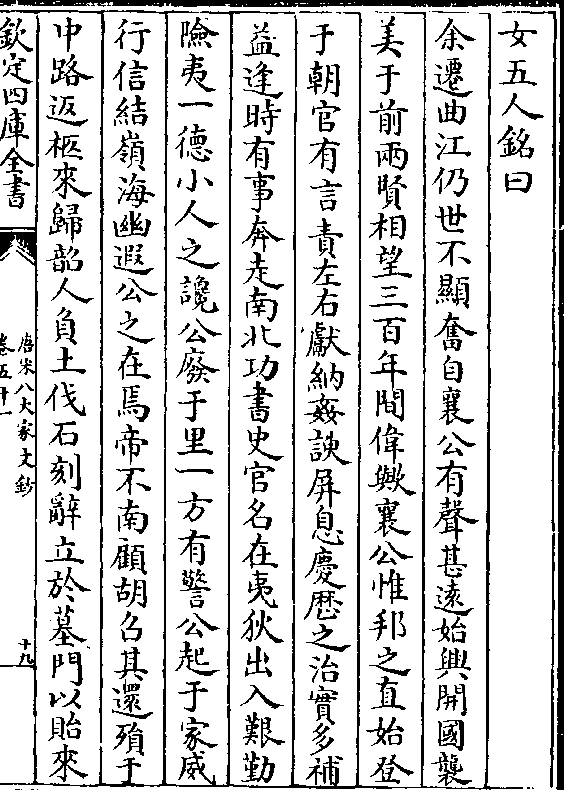 女五人銘曰
余遷曲江仍世不顯奮自襄公有聲甚逺始興開國襲
美于前兩賢相望三百年間偉歟襄公惟邦之直始登
于朝官有言責左右獻納姦諛屏息慶厯之治實多補
益逢時有事奔走南北功書史官名在夷狄出入艱勤
險夷一德小人之讒公廢于里一方有警公起于家威
行信結嶺海幽遐公之在焉帝不南顧胡召其還殞于
中路返柩來歸韶人負土伐石刻辭立於墓門以貽來
欽定四庫全書
唐宋八大家文鈔
卷五十一
十九